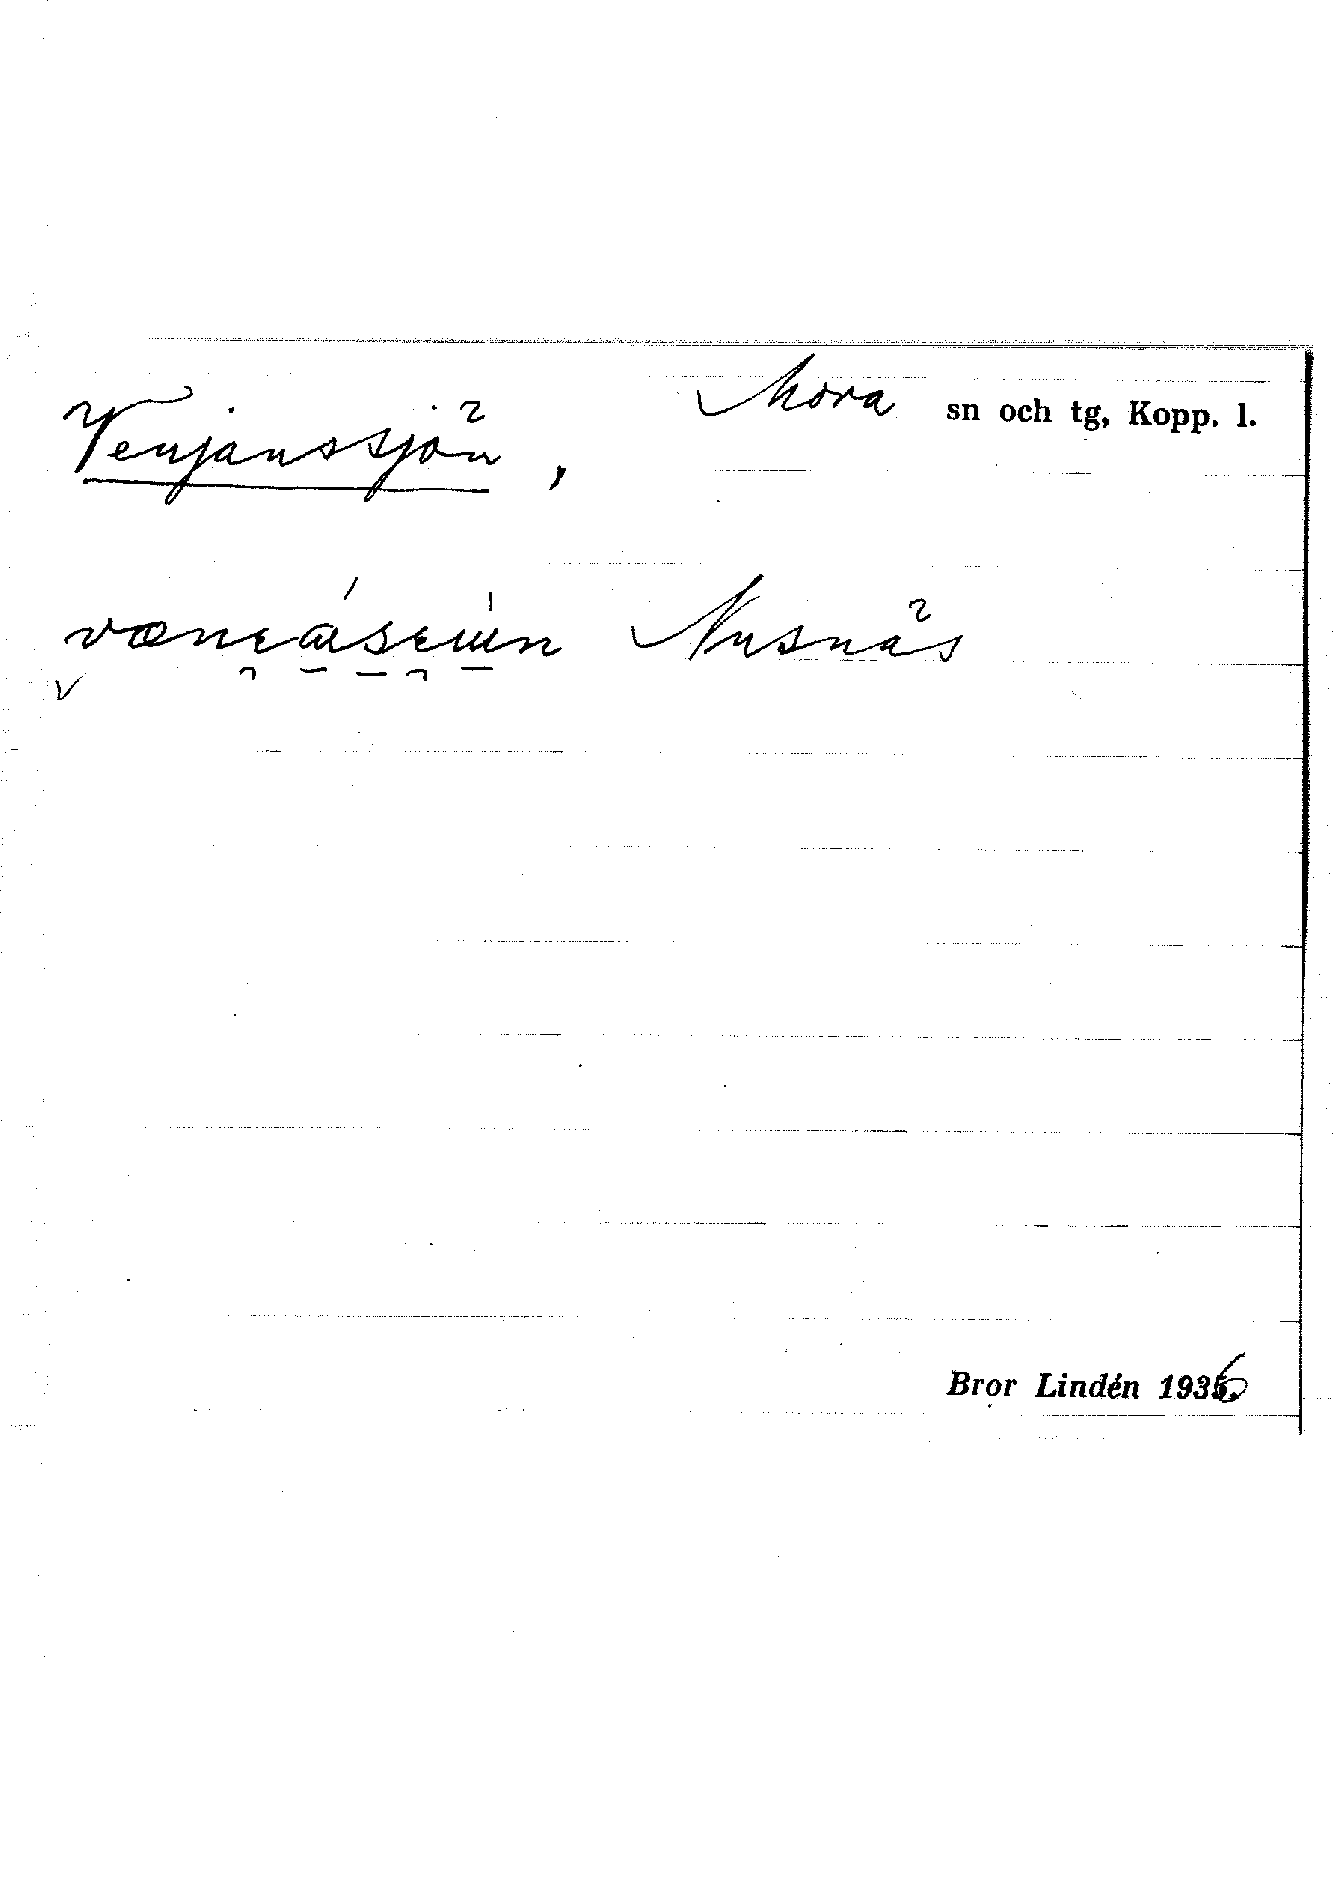 Mora sn och tg, Kopp. l.
Venjanssjön,
Nusnäs
Bror Lindén 1936